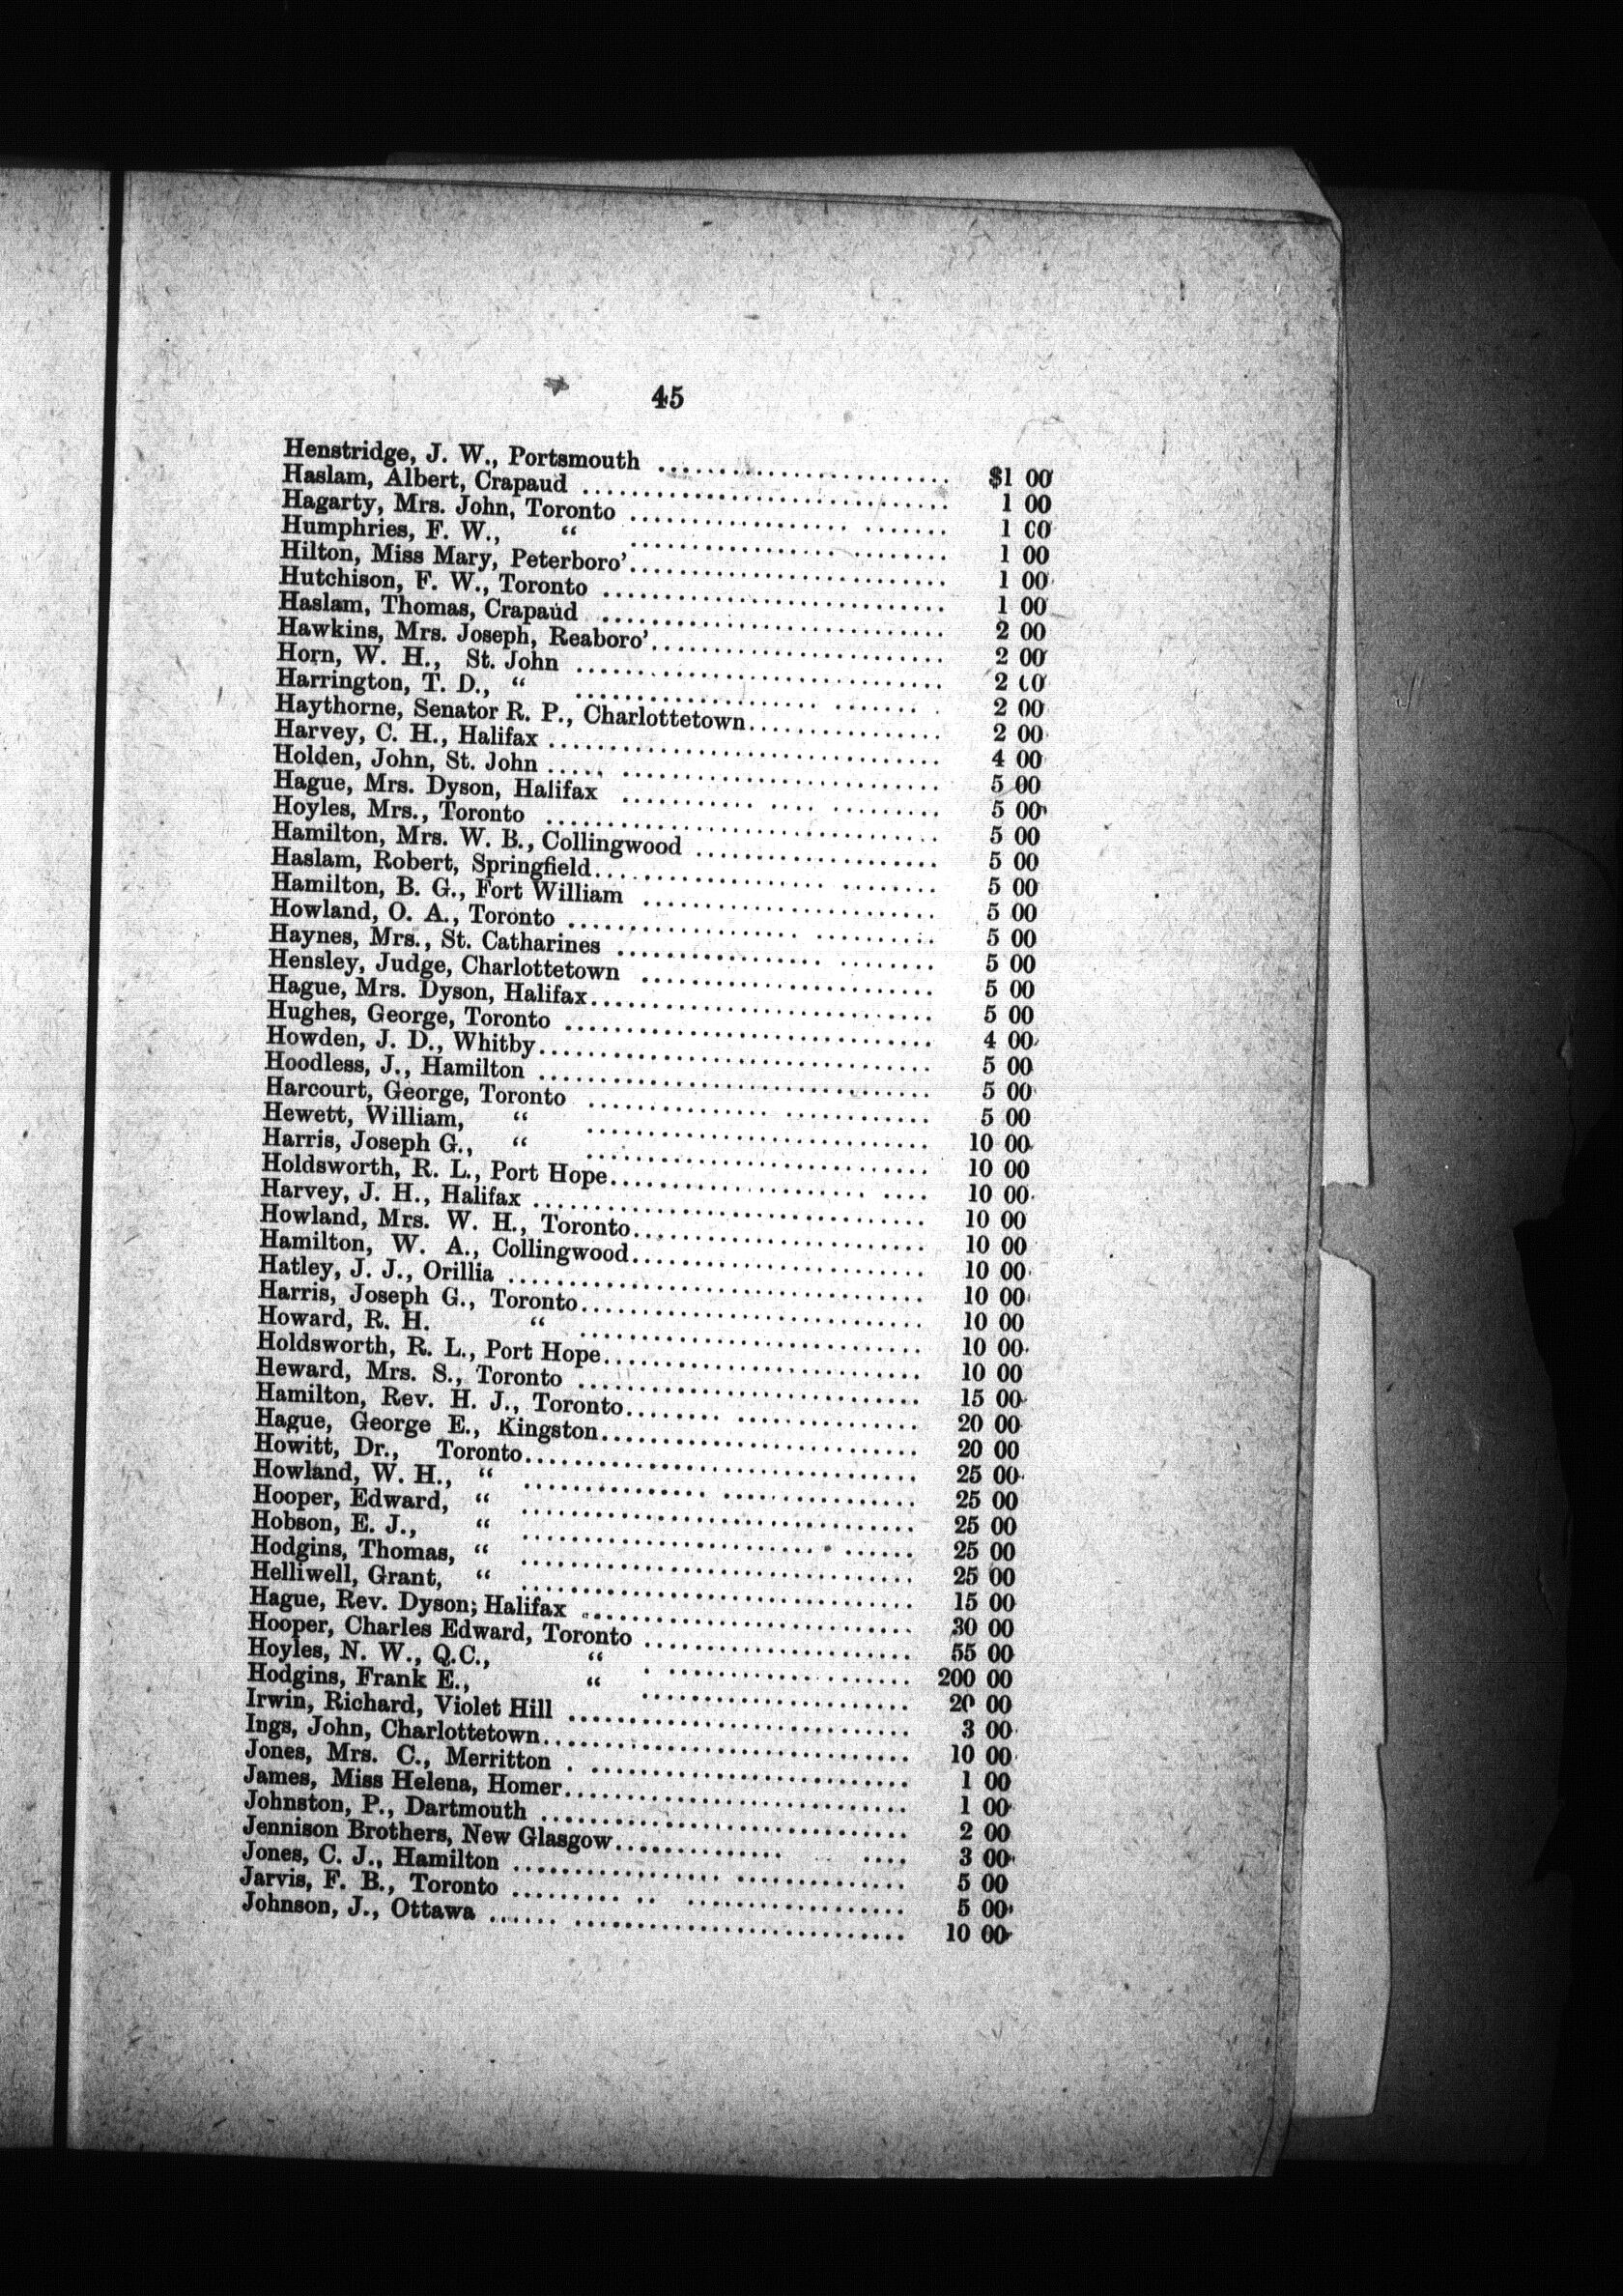 45
Henstridge, J. W., Portsmouth .......... $1 00
Haslam, Albert, Crapaud .......... 1 00
Hagarty, Mrs. John, Toronto .......... 1 00
Humphries, F. W., “ .......... 1 00
Hilton, Miss Mary, Peterboro’ .......... 1 00
Hutchison, F. W., Toronto .......... 1 00
Haslam, Thomas, Crapaud .......... 2 00
Hawkins, Mrs. Joseph, Reaboro’ .......... 2 00
Horn, W. H., St. John .......... 2 00
Harrington, T. D., “ .......... 2 00
Haythorne, Senator R. P., Charlottetown .......... 2 00
Harvey, C. H., Halifax .......... 4 00
Holden, John, St. John .......... 5 00
Hague, Mrs. Dyson, Halifax .......... 5 00
Hoyles, Mrs., Toronto .......... 5 00
Hamilton, Mrs. W. B., Collingwood .......... 5 00
Haslam, Robert, Springfield .......... 5 00
Hamilton, B. G., Fort William .......... 5 00
Howland, O. A., Toronto .......... 5 00
Haynes, Mrs., St. Catharines .......... 5 00
Hensley, Judge, Charlottetown .......... 5 00
Hague, Mrs. Dyson, Halifax .......... 5 00
Hughes, George, Toronto .......... 4 00
Howden, J. D., Whitby .......... 5 00
Hoodless, J., Hamilton .......... 5 00
Harcourt, George, Toronto .......... 5 00
Hewett, William, “ .......... 10 00
Harris, Joseph G., “ .......... 10 00
Holdsworth, R. L., Port Hope .......... 10 00
Harvey, J. H., Halifax .......... 10 00
Howland, Mrs. W. H., Toronto .......... 10 00
Hamilton, W. A., Collingwood .......... 10 00
Hatley, J. J., Orillia .......... 10 00
Harris, Joseph G., Toronto .......... 10 00
Howard, R. H. “ .......... 10 00
Holdsworth, R. L., Port Hope .......... 10 00
Heward, Mrs. S., Toronto .......... 15 00
Hamilton, Rev. H. J., Toronto .......... 20 00
Hague, George E., Kingston .......... 20 00
Howitt, Dr., Toronto .......... 25 00
Howland, W. H., “ .......... 25 00
Hooper, Edward, “ .......... 25 00
Hobson, E. J., “ .......... 25 00
Hodgins, Thomas, “ .......... 25 00
Helliwell, Grant, “ .......... 15 00
Hague, Rev. Dyson; Halifax .......... 30 00
Hooper, Charles Edward, Toronto .......... 55 00
Hoyles, N. W., Q.C., “ .......... 200 00
Hodgins, Frank E., “ .......... 20 00
Irwin, Richard, Violet Hill .......... 3 00
Ings, John, Charlottetown .......... 10 00
Jones, Mrs. C., Merritton .......... 1 00
James, Miss Helena, Homer .......... 1 00
Johnston, P., Dartmouth .......... 2 00
Jennison Brothers, New Glasgow .......... 3 00
Jones, C. J., Hamilton .......... 5 00
Jarvis, F. B., Toronto .......... 5 00
Johnson, J., Ottawa .......... 10 00